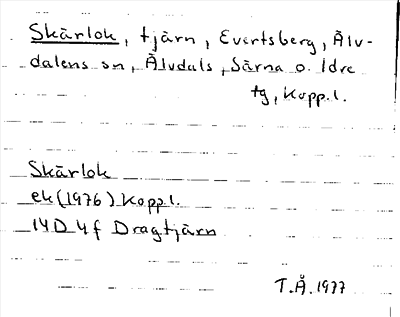 Skärlok, tjärn, Evertsberg, Älv-
dalens sn, Älvdals, Särna o. Idre
tg, Kopp.l.
Skärlok
ek (1976) Kopp.l.
14D 4f Dragtjärn
T.Å. 1977